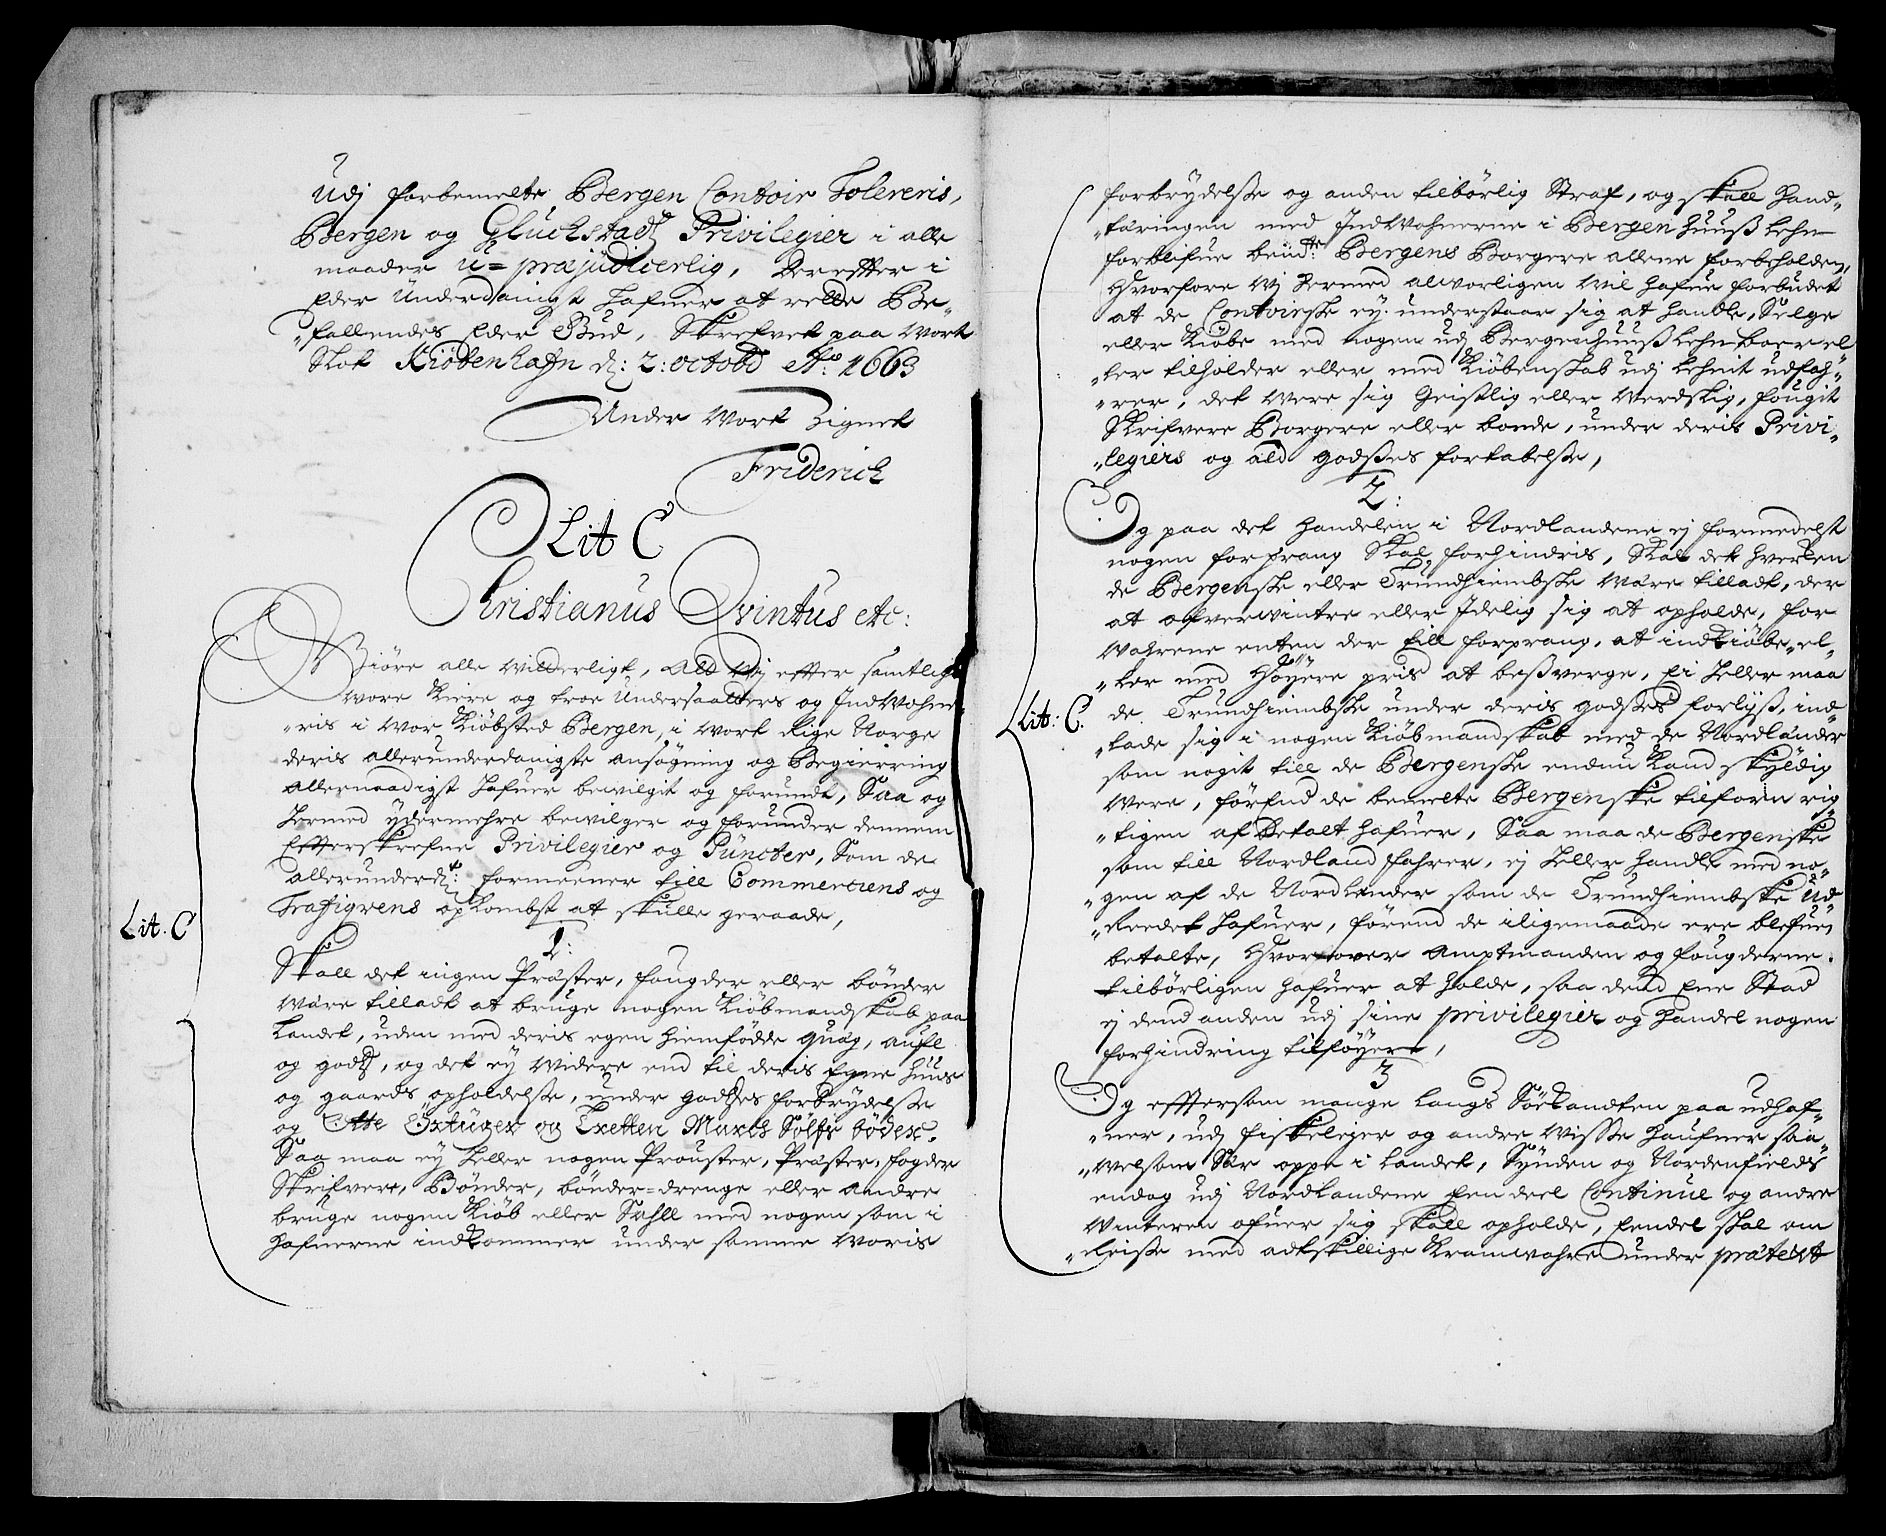 Udj forbemelte Bergen Contoir Tolereris,
Bergen og Gluchstadz Privilegier i alle
maader u-præjudicerlig, Dereffter i
Eder Underdanigst hafuer at rette Be-
„fallendes Eder Gud, Skrefvet paa Wort
Slot Kiöbenhafn d: 2: octobr Ao: 1663
Under Wort Zignet
Friderich
Lit C
Christianus Qvintus etc:
Giöre alle witterligt, Att Wj effter samtlige
wore Kiere og troe Undersaatters og Indwohne-
„ris i wor Kiöbsted Bergen, i wort Rige Norge
deris allerunderdanigste ansögning og Begierring
allernaadigst hafuer bewilgit og forundt, Saa og
hermed ydermehre bewilger og forunder dennem
Effterskrefne Privilegier og Puncter, Som de
allerunderd: formeener till Commerciens og
Traffiqvens opkombst at skulle geraade,
Lit. C
1:
Skall det ingen Præster, fougder eller bönder
Være tilladt at bruge nogen Kiöbmandskab paa
Landet, uden med deris egen hiemfödde qvæg, aufl
og godz, og det ey widere end til deris Egne huus
og gaards opholdelse, under godtzes forbrydelse
og Otte Örtuger og Tretten March Sölfs böder.
Saa maa ey heller nogen Prouster, Præster, fogder
Skrifvere, Bönder, bönder-drenge eller andre
bruge nogen Kiöb eller Sahll med nogen som i
hafnerne indkommer under samme Woris
forbrydelse og anden tilbörlig Straf, og skall hand-
„täringen med Indwohnerne i Bergenhuuß Lehn
forblifue bemte: Bergens Borgere allene forbeholden,
Hvorfore Wj dermed alvorligen wil hafue forbudet
at de Contoirske ey understaar sig at handle, Selge
eller Kiöbe med nogen udj Bergenhuuß Lehn boer el
„ler tilholder eller med Kiöbenskab udj Lehnit udfah-
„rer, det were sig Geistlig eller Werdslig, fougit
Skrifvere Borgere eller bonde, under deris Privi-
„legiers og ald godßes fortabelse,
2:
Og paa det handelen i Nordlandene ej formedelst
nogen forprang Skal forhindris, Skal det hverken
de Bergenske eller Trundhiembske være tilladt, der
at ofverwintre eller Idelig sig at opholde, for
wahrene enten der till forprang, at indkiöbe, el-
„ler med höyere pris at beßverge, Ei heller maa
Lit: C.
de Trundhiembske under deris godßes forlyß, ind-
„lade sig i nogen Kiöbmandskab med de Nordländer
som nogit till de Bergenske endnu kand skyldig
were, förend de bemelte Bergenske tilforn rig-
„tigen afbetalt hafuer, Saa maa de Bergenske
som till Nordland fahrer, ej heller handle med no-
„gen af de Nordlender som de Trundhiembske ud-
„Reedet hafuer, förend de iligemaade ere blefuen
betalte, Hvorover Amptmanden og fougderne
tilbörligen hafuer at holde, saa dend Ene Stad
ej dend anden udj sine privilegier og handel nogen
forhindring tilföyere,
3
Og efftersom mange langs Söekandten paa udhaf-
„ner, udj fiskelejer og andre wisse haufner saa-
„velsom Sör oppe i landet, Synden og Nordenfields
endog udj Nordlandene Een deel Continue og andre
Winteren ofuer sig skall opholde, Eendel skal om
„Reise med adskillige Kramwahre under prætext